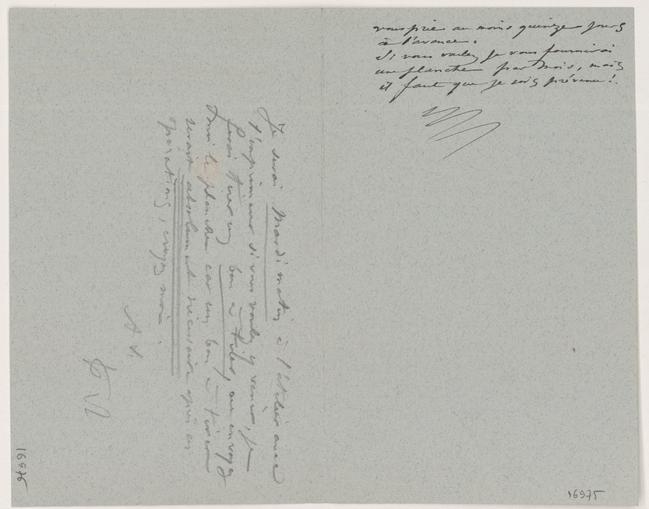 vous prie au moins quinze jours
à l'avance.
Si vous voulez je vous fournirai
une planche par mois, mais
il faut que je sois prévenu!
Je serai Mardi matin à l'atelier avec
l'imprimeur si vous voulez y venir, je
ferai tirer un bon à tirer, ou envoyez
moi la planche car un bon à tirer
serait absolument nécessaire après
opérations, croyez moi.
A V.
16975
16976